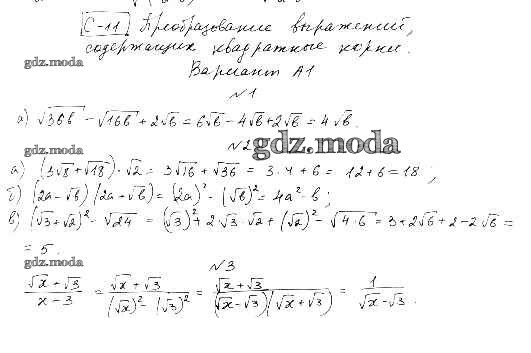 С-11 Преобразование выражений,
содержащих квадратные корни.
gdz.moda
Вариант А1
№1
а) √36b - √16b + 2√b = 6√b - 4√b + 2√b = 4√b.
№2
gdz.moda
gdz.moda
а) (3√8 + √18)·√2 = 3√16 + √36 = 3·4 + 6 = 12 + 6 = 18;
б) (2a - √b)(2a + √b) = (2a)² - (√b)² = 4a² - b;
в) (√3 + √2)² - √24 = (√3)² + 2√3·√2 + (√2)² - √4·6 = 3 + 2√6 + 2 - 2√6 =
= 5.
gdz.moda
№3
(√x + √3)/(x - 3) = (√x + √3)/((√x)² - (√3)²) = (√x + √3)/((√x - √3)(√x + √3)) = 1/(√x - √3).